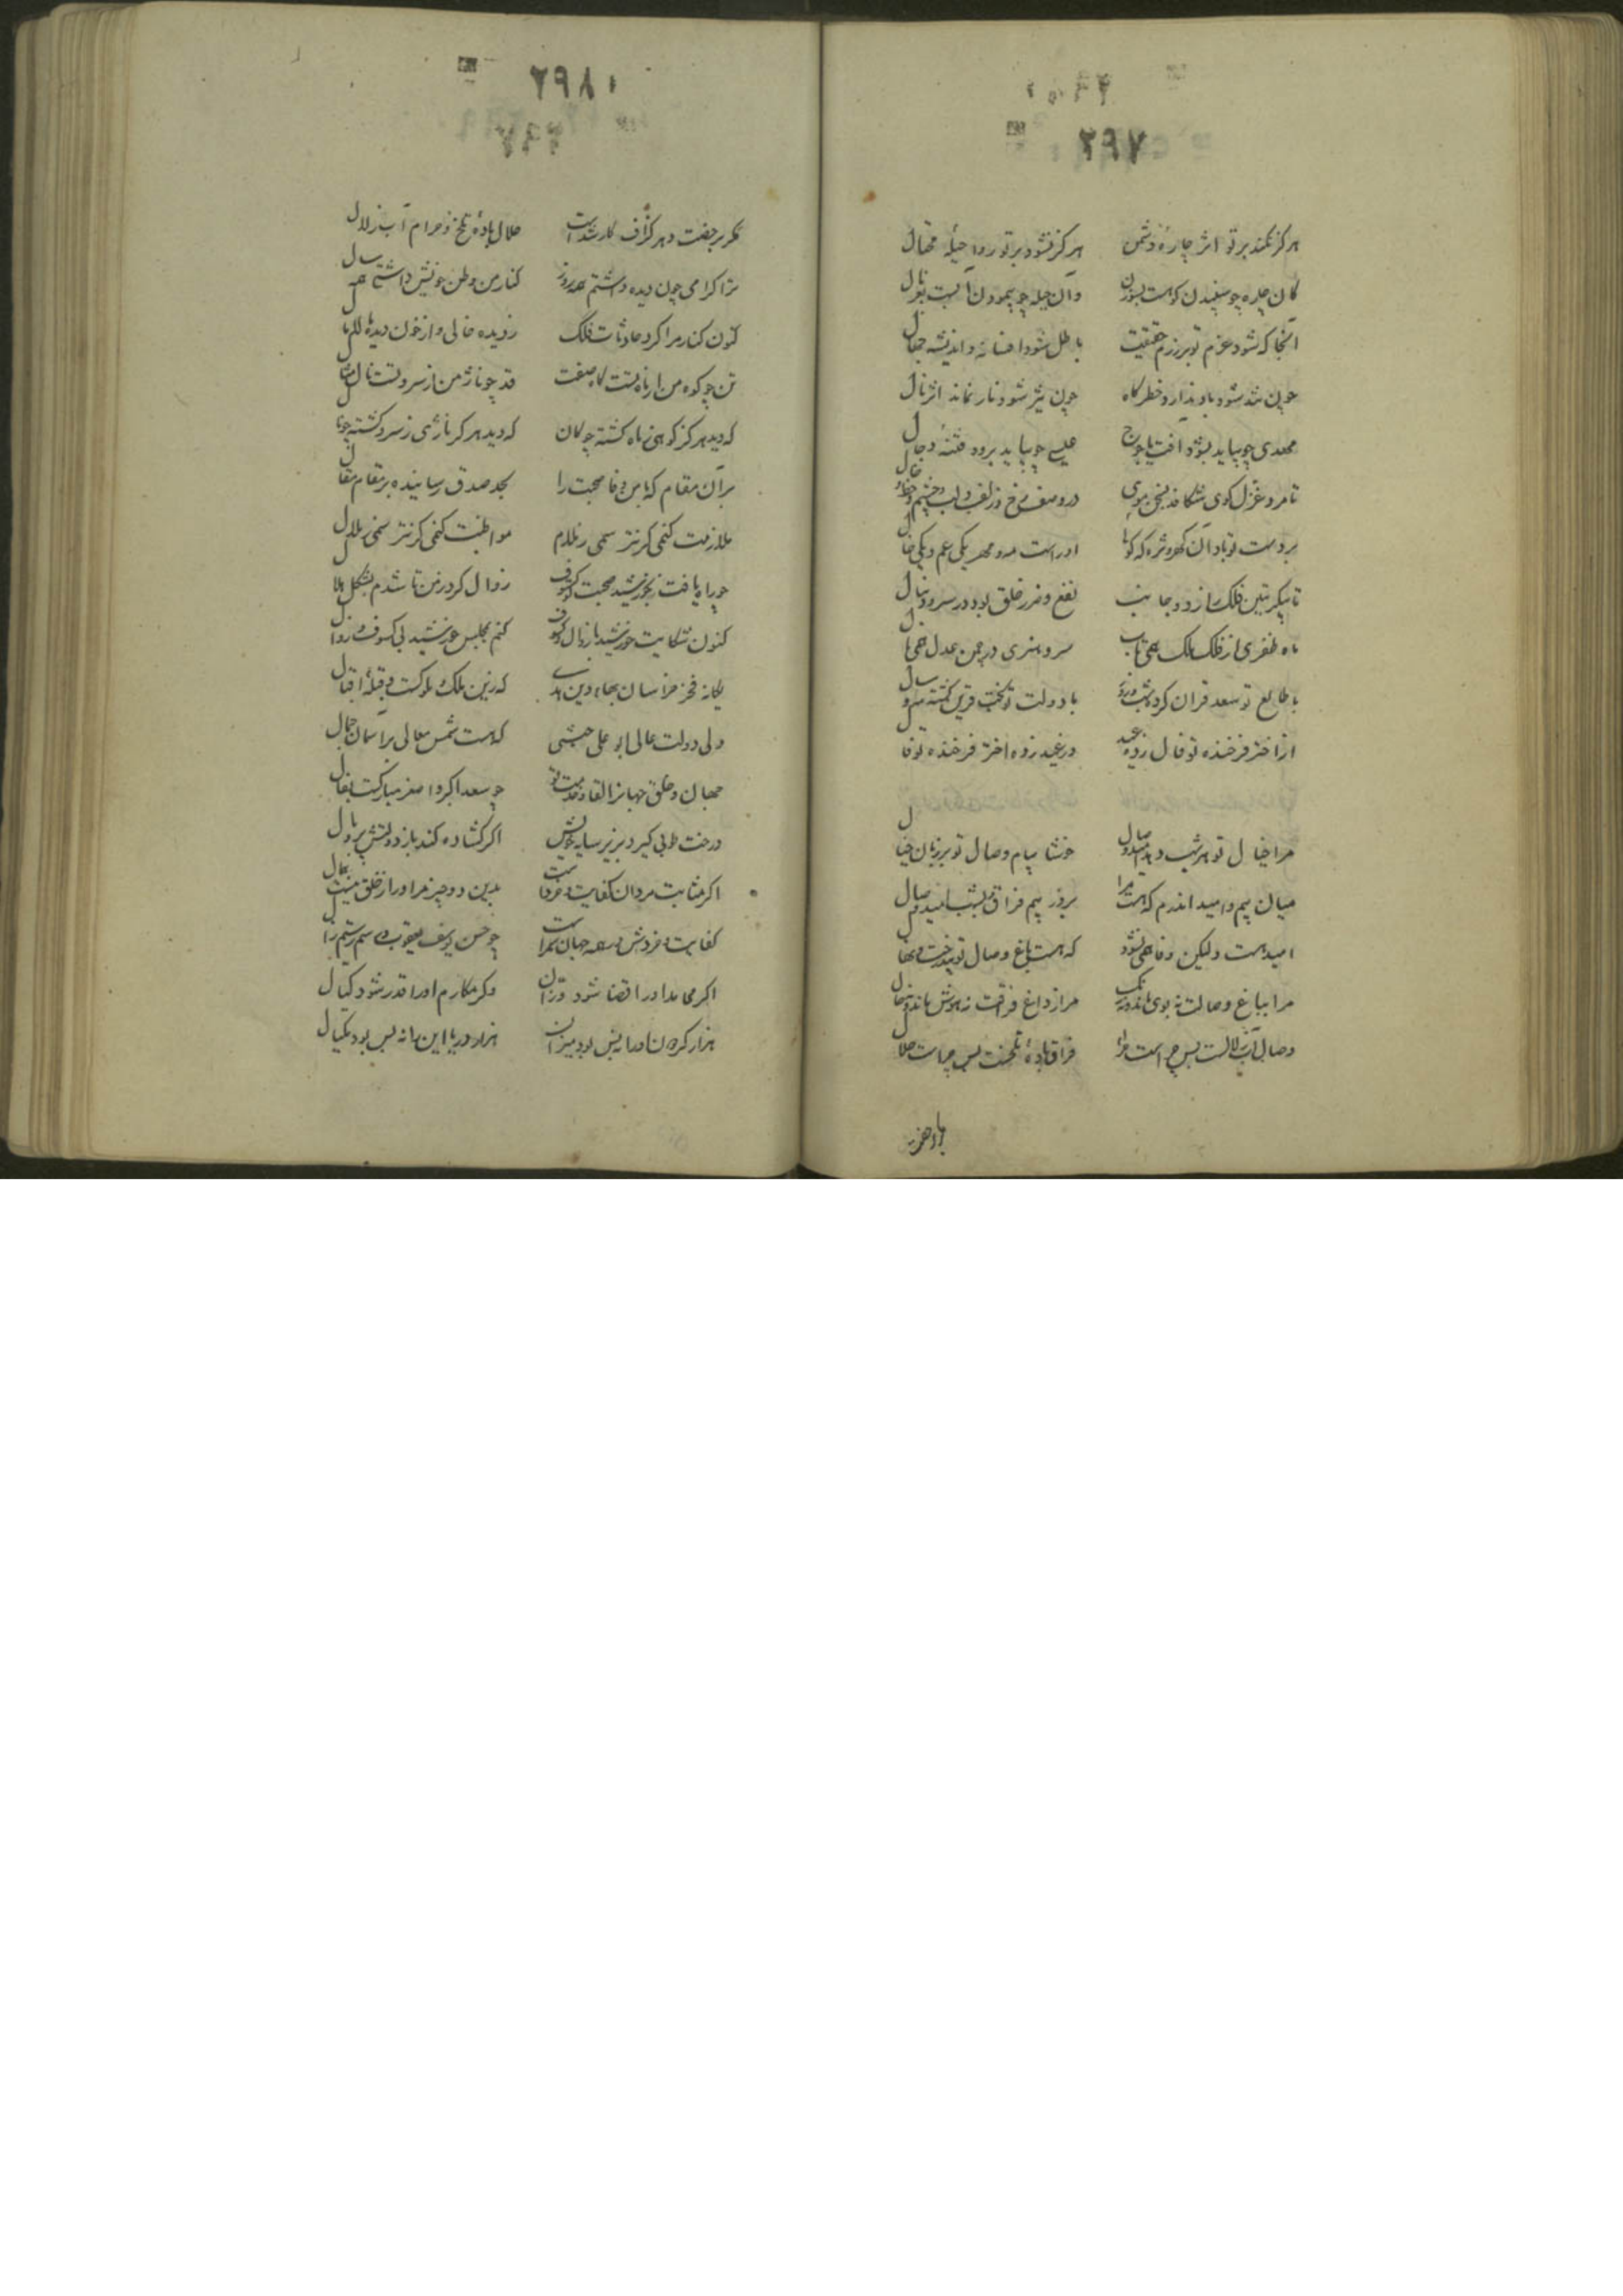 ۲۹۷
هرگز نکند بر تو اثر چارهٔ دشمن هرگز نشود بر تو روا حیلهٔ محتال
کان چاره چو سنجیدن کوهست وان حیله چو پیمودن آبست بغربال
آنجا که شود عزم تو بر رزم حقیقت باطل شود افسانه و اندیشه جهال
چون تند شود باد ندارد خطر کاه چون تیز شود نار نماند اثر نال
مهدی چو بیاید بشود آفت یاجوج عیسی چو بیاید برود فتنهٔ دجال
تا مرد غزل کوی شکافد بسخن موی در وصف رخ و زلف و لب و چشم و خط و خال
بر دست تو باد آن که کویا او راست مه و مهر یکی عم و یکی خال
تا پیکر تنین فلک را ز دو جانب نفع و ضرر خلق بود در سر و دنبال
ماه ظفری از فلک ملک همی تاب سرو هنری در چمن عدل همی بال
با طالع تو سعد قران کرده شب و روز با دولت تو بخت قرین کشته مه و سال
از اختر فرخنده تو فال زده عید در عید زده اختر فرخنده تو فال
مرا خیال تو هر شب دهد امید وصال خوشا پیام وصال تو بر زبان خیال
میان بیم و امید اندرم که هست مرا بروز بیم فراق و بشب امید وصال
امید هست ولیکن وفا همی نشود که هست باغ وصال تو بی درخت و نهال
مرا بباغ وصالت نه بوی ماند و نه رنک مرا ز داغ فراقت نه هوش ماند و نه حال
وصال آب زلالست پس حرام است مرا فراق بادهٔ تلخست پس چراست حلال
۲۹۸
مکر برجفت و هر کزاف کار شده است حلال بادهٔ تلخ و حرام آب زلال
ترا کرامی چون دیده داشتم همه روز کنار من وطن خویش داشتی همه سال
کنون کنار مرا کرد حادثات فلک ز دیده خالی و از خون دیده مالامال
تن چو کوه من از ناه تست کاه صفت قد چو ناژ من از سرو تست نال مثال
که دید هرکز کوهی ز ماه کشته چو کاه که دید هرکز ناژی ز سرو کشته چو نال
بر آن مقام که با من وفا صحبت را بجد صدق رسانیده بر مقام مقال
ملازمت کنمی کر نترسمی ز ملام مواظبت کنمی کر نترسمی ز ملال
چو راه یافت بخورشید صحبت تو کسوف زوال کرد ز من تا شدم بشکل هلال
کنون شکایت خورشید با زوال و کسوف کنم بمجلس خورشید بی کسوف و زوال
یکانه فخر خراسان بهاء دین هدی که زین ملک ملوکست و قبلهٔ اقبال
ولی دولت عالی ابو علی ختنی که هست شمس معالی بر آسمان جمال
جهان و خلق جهانرا لقا و خدمت تو چو سعد اکبر و اصغر مبارکست بفال
درخت طوبی کیرد بزیر سایه خویش اگر کشاده کند باز دولتش پر و بال
بدین دو چیز مر او را ز خلق نیست همال
کفایت و خردش در همه جهان سمر است چو حسن یوسف یعقوب و رستم زال
اگر محامد او را قضا شود وزان وگر مکارم او را قدر شود کیال
هزار کردون او را نه بس بود میزان هزار دریا این را نه بس بود مکیال